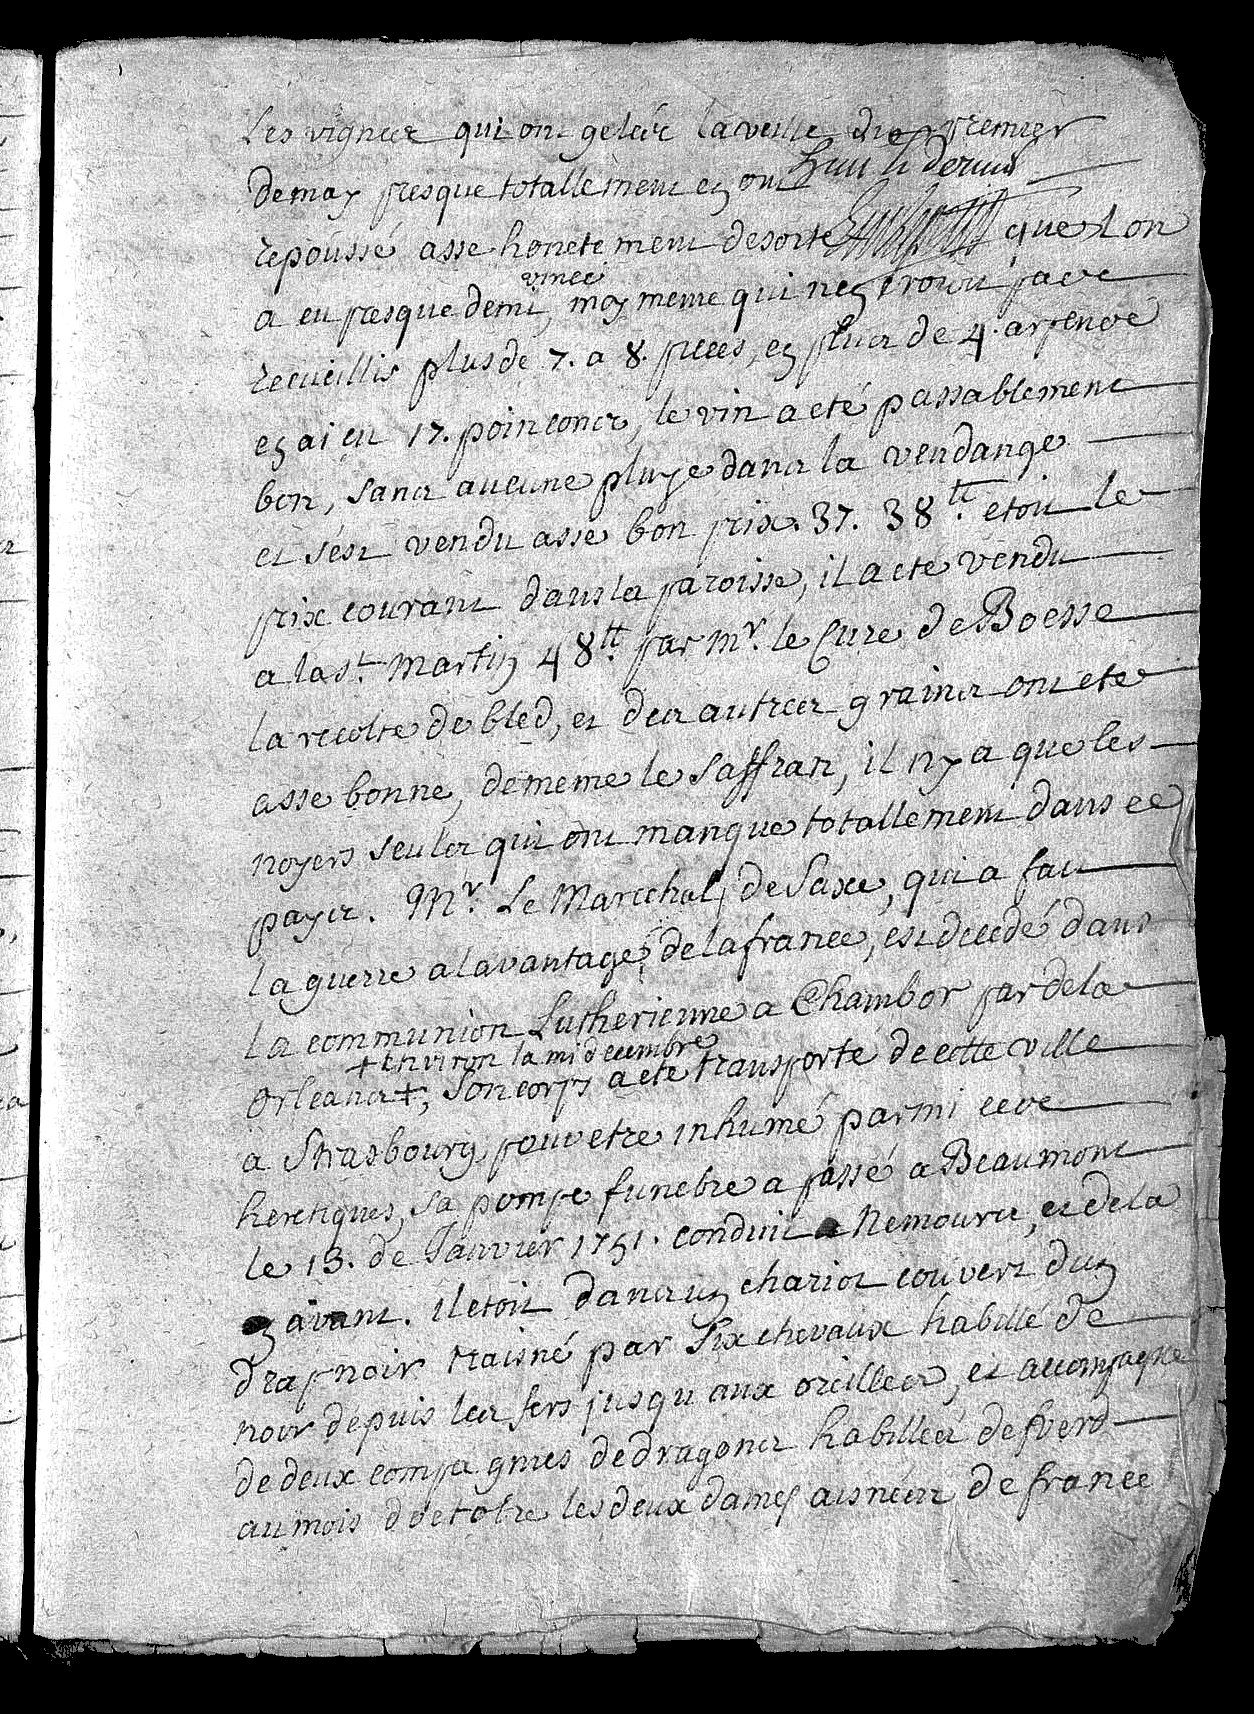 Les vignes qui ont gelées la veille du premier
de may presque totallement en ont
repoussé asse honetement de sorte que l on
a eu presque demi vinée, moy meme qui n en
recueillis plus de 7. a 8. pieces, en plus de 4. arpens
en ai eu 17. poinçons, le vin a eté passablement
bon, sans aucune pluye dans la vendange
et s'est vendu asse bon prix. 37. 38.tt etoit le
prix courant dans la paroisse, il a eté vendu
a la st. Martin 48.tt par mr. le Curé de Boesse
la recolte de bled, et des autres grains ont ete
asse bonne, de meme le saffran, il n y a que les
noyers seules qui ont manque totallement dans ce
payis. Mr. Le Marechal de Saxe, qui a fait
la guerre a lavantage de la france, est decedé dans
la communion Lutherienne a Chambor par dela
+ Environ la mi decembre
Orleans +, son corps a eté transporté de cette ville
a Strasbourg pour etre inhumé parmi ces
heretiques, sa pompe funebre a passé a Beaumont
le 13. de Janvier 1751. conduit a Nemours, et de la
en avant. il etoit dans un chariot couvert dun
drap noir traisné par six chevaux habillé de
noir depuis les fers jusqu aux oreilles, et accompagné
de deux compagnies de dragons habillés de verd
au mois d octobre les deux dames aisnées de france